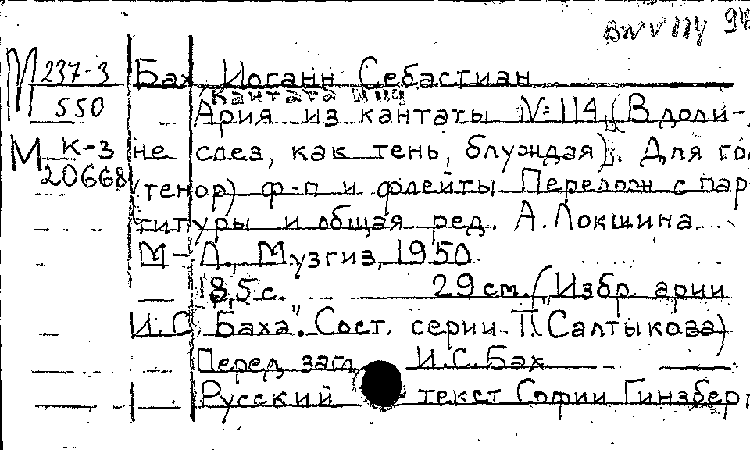 BWV 114
М 237-3
550
М К-3
20668
Бах, Иоганн Себастиан
Кантата №114
Ария из кантаты №114 (В доли-
не слез, как тень, блуждая). Для
(тенор) ф-п и флейты Перелож с пар
титуры и общая ред. А. Локшина
М-Л., Музгиз, 1950.
8,5 с. 29 см. (Избр. арии
И.С. Баха". Сост. серии П. Салтыкова)
Перед загл. И.С. Бах
Русский текст Софии Гинзбер